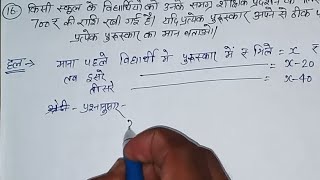 (16) किसी स्कूल के विद्यार्थियों को उनके समग्र शैक्षिक प्रदर्शन के लिए
700₹ की राशि रखी गई है। यदि प्रत्येक पुरस्कार अपने से ठीक प
प्रत्येक पुरुस्कार का मान बताओ।
हल:- माना पहले विद्यार्थी में पुरुस्कार में ₹ मिले = x ₹
तब दूसरे = x-20
तीसरे = x-40
प्रश्नानुसार -